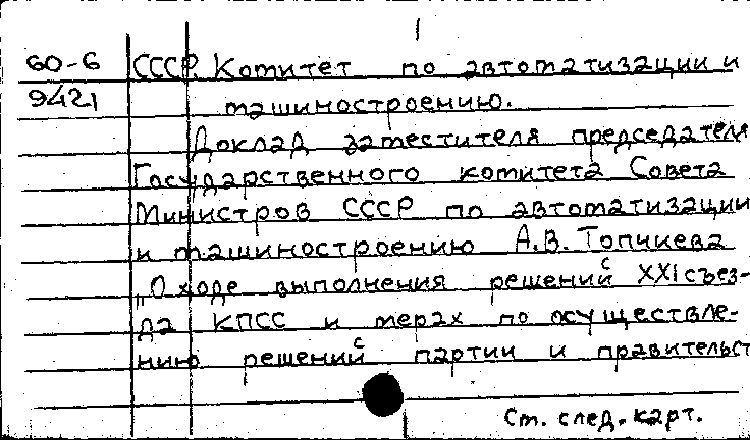 60-6 СССР. Комитет по автоматизации и
9421 машиностроению.
Доклад заместителя председателя
Государственного комитета Совета
Министров СССР по автоматизации
и машиностроению А.В. Топчиева
„О ходе выполнения решений XXI съез-
да КПСС и мерах по осуществле-
нию решений партии и правительст
См. след. карт.